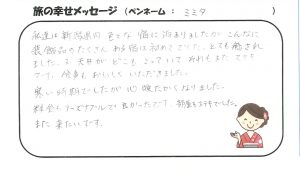 旅の幸せメッセージ (ペンネーム : ミミタ )
私達は新潟県内 色々な 宿に 泊まりましたが こんなに
装飾品のたくさん ある宿は初めてでした。とても癒され
ました。 天井が どこも
です。 食事も おいしく いただきました。
寒い 時期でしたが 心 暖かくなりました。
料金も リーズナブルで 良かったです。 部屋もステキでした。
また 来たいです。